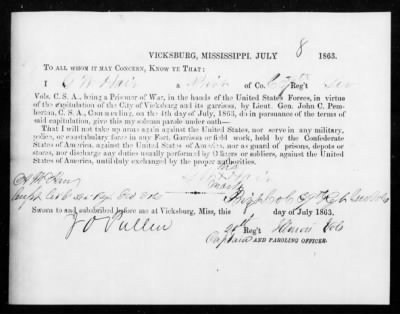 VICKSBURG, MISSISSIPPI, JULY 8 1863.
TO ALL WHOM IT MAY CONCERN, KNOW YE THAT:
I a of Co. Reg't
Vols. C. S. A., being a Prisoner of War, in the hands of the United States Forces, in virtue
of the capitulation of the City of Vicksburg and its garrison, by Lieut. Gen. John C. Pem-
berton, C. S. A., Commanding, on the 4th day of July, 1863, do in pursuance of the terms of
said capitulation, give this my solemn parole under oath—
That I will not take up arms again against the United States, nor serve in any military,
police, or constabulary force in any Fort, Garrison or field work, held by the Confederate
States of America, against the United States of America, nor as guard of prisons, depots or
stores, nor discharge any duties usually performed by Officers or soldiers, against the United
States of America, until duly exchanged by the proper authorities.
his
mark
Sworn to and subscribed before me at Vicksburg, Miss., this day of July 1863.
Reg't Illinois Vols
Captain AND PAROLING OFFICER.